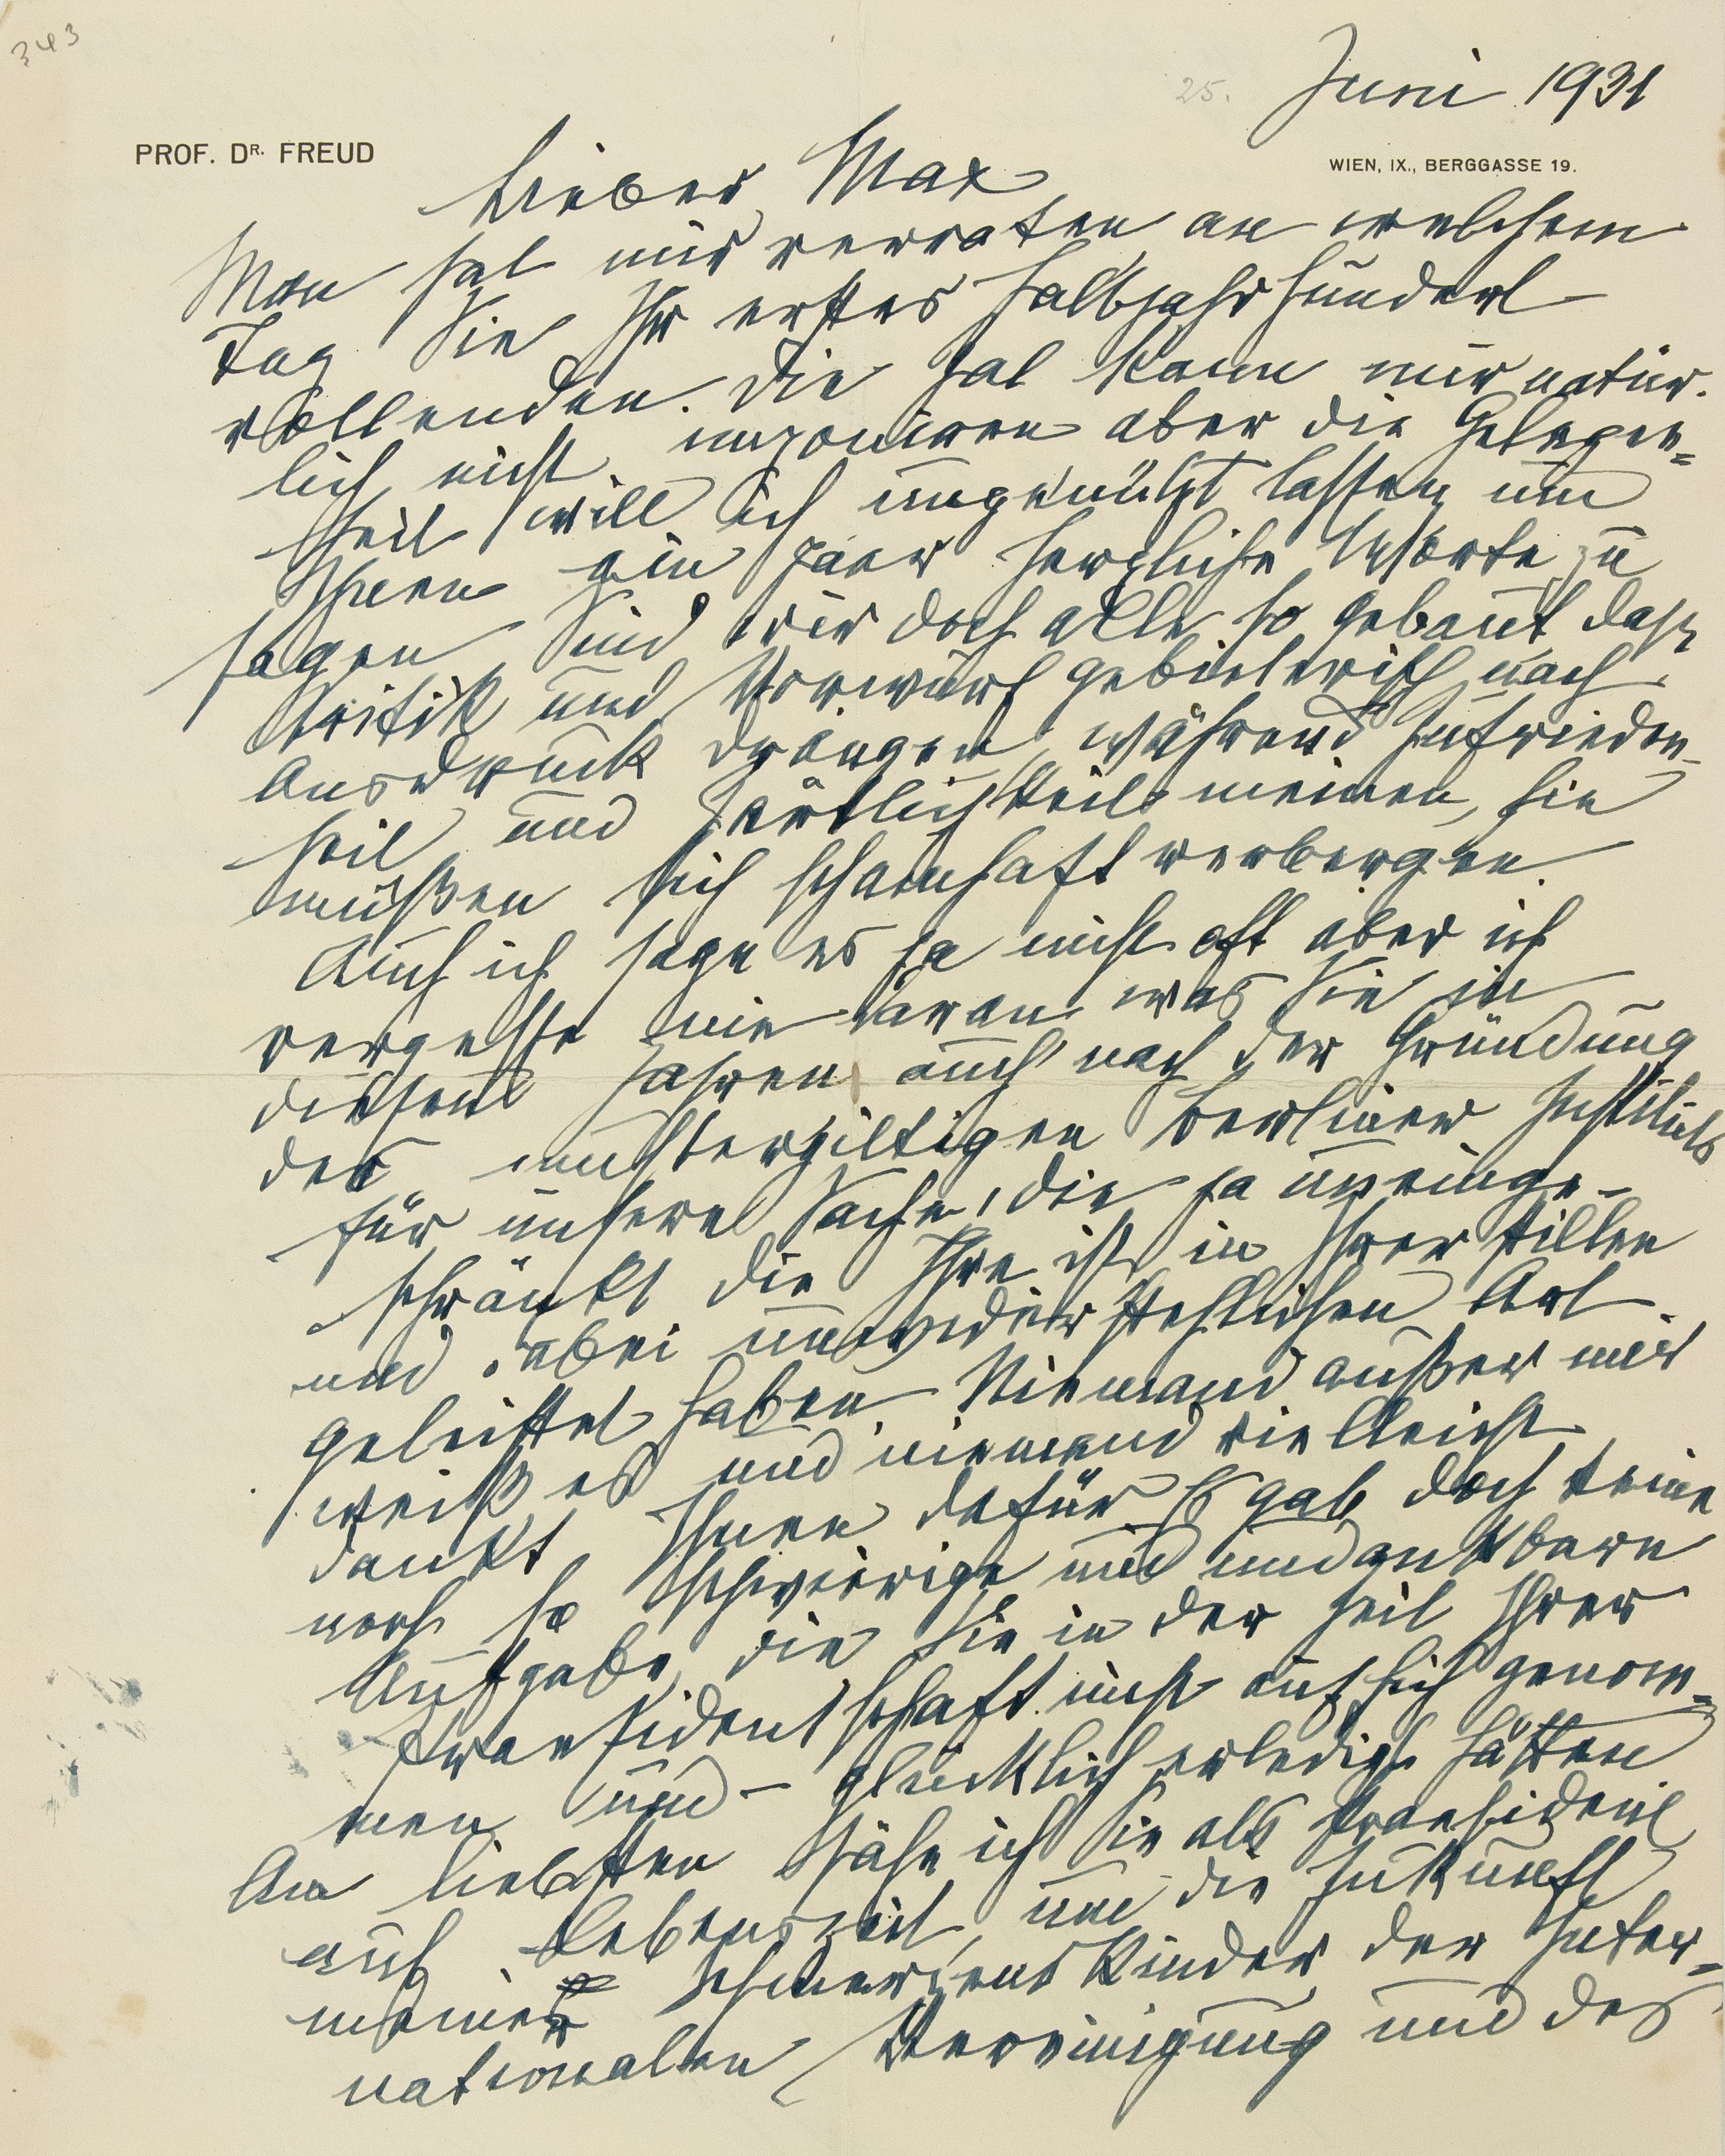 343
25. Juni 1931
PROF. DR. FREUD
WIEN, IX., BERGGASSE 19.
Lieber Max
Man hat mir verraten an welchem
Tag Sie Ihr erstes Halbjahrhundert
vollenden. Die Zal kann mir natür-
lich nicht imponiren aber die Gelegen=
heit will ich ungenützt lassen um
Ihnen ein paar herzliche Worte zu
sagen. Sind wir doch alle so gebaut daß
Kritik und Vorwurf gebieterisch nach
Ausdruck drängen, während Zufrieden-
heit und Zärtlichkeit meinen, sie
müßen sich schamhaft verbergen.
Auch ich sage es ja nicht oft aber ich
vergesse nie daran was Sie in
diesen Jahren auch nach der Gründung
des mustergiltigen Berliner Instituts
für unsere Sache, die ja uneinge-
schränkt die Ihre ist, in Ihrer stillen
und dabei unwiderstehlichen Art
geleistet haben. Niemand außer mir
weiß es und niemand vielleicht
dankt Ihnen dafür. Es gab doch keine
noch so schwierige und undankbare
Aufgabe, die Sie in der Zeit Ihrer
Praesidentschaft nicht auf sich genom=
men und – glücklich erledigt hätten
Am liebsten sähe ich Sie als Praesident
auf Lebenszeit, um die Zukunft
meiner Schmerzenskinder der Inter=
nationalen Vereinigung und des